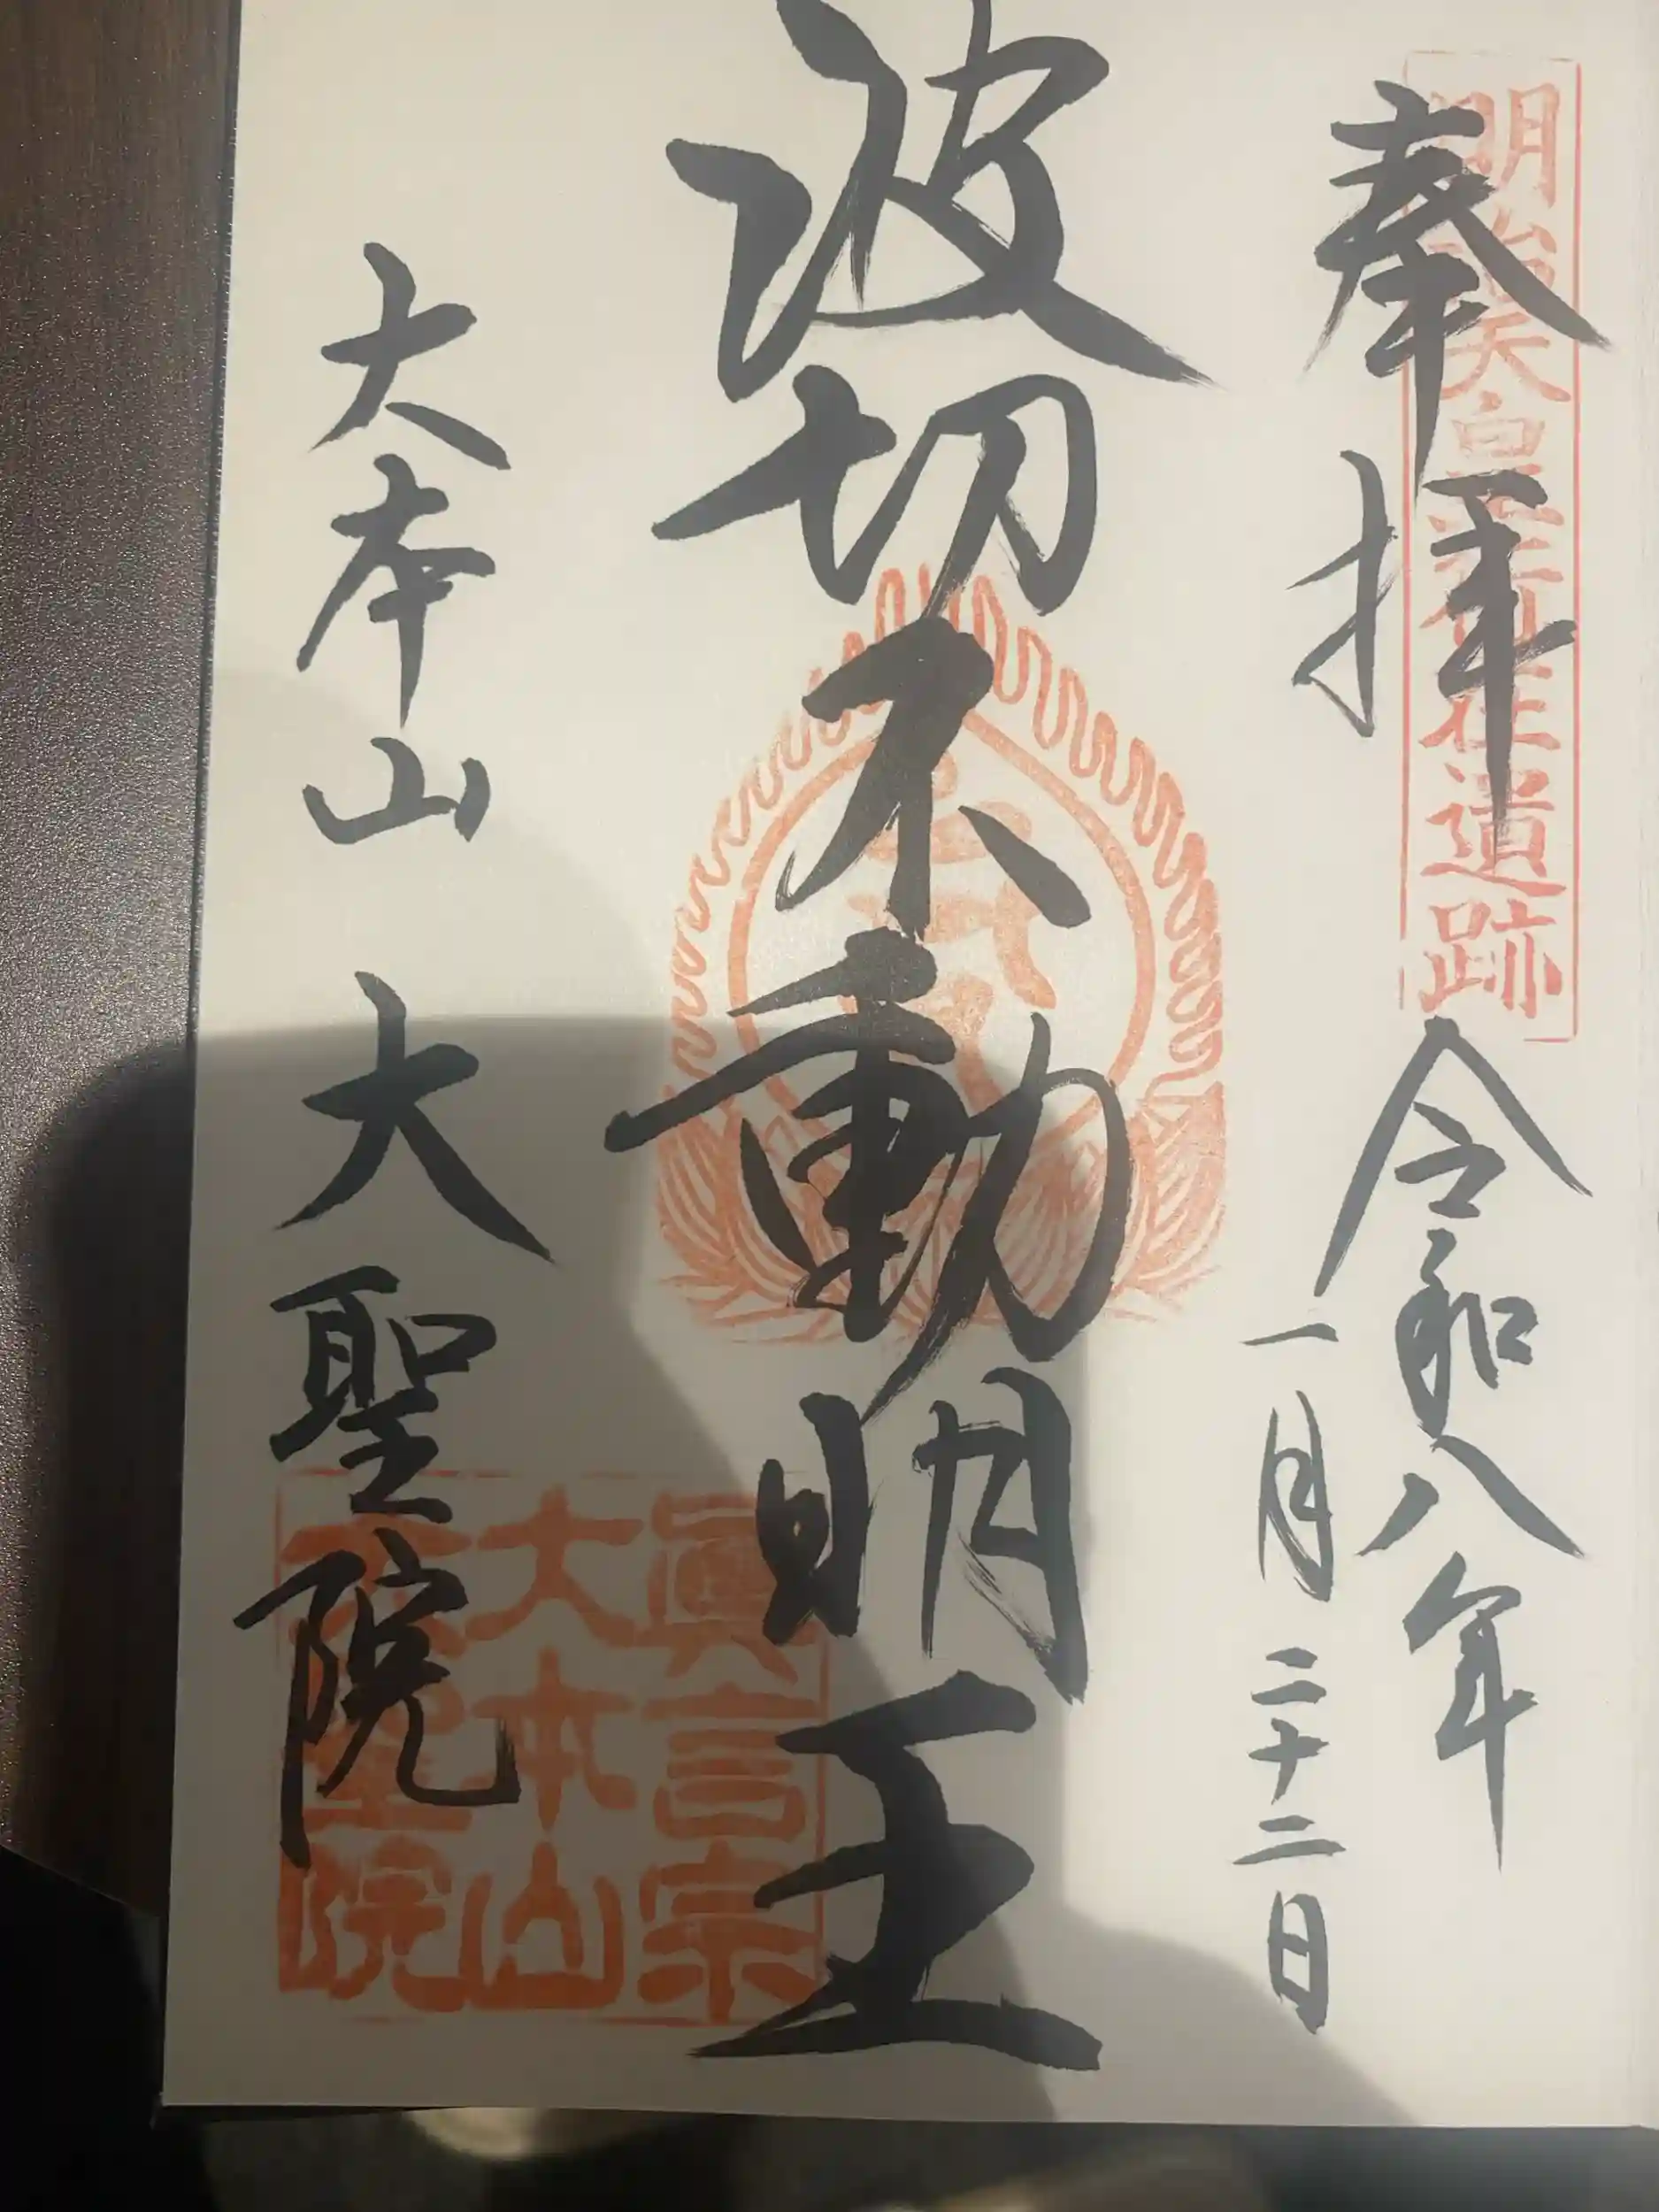 奉拝
明治天皇御駐在遺跡
令和八年
一月二十二日
波切不動明王
大本山 大聖院
眞言宗
大本山
大聖院